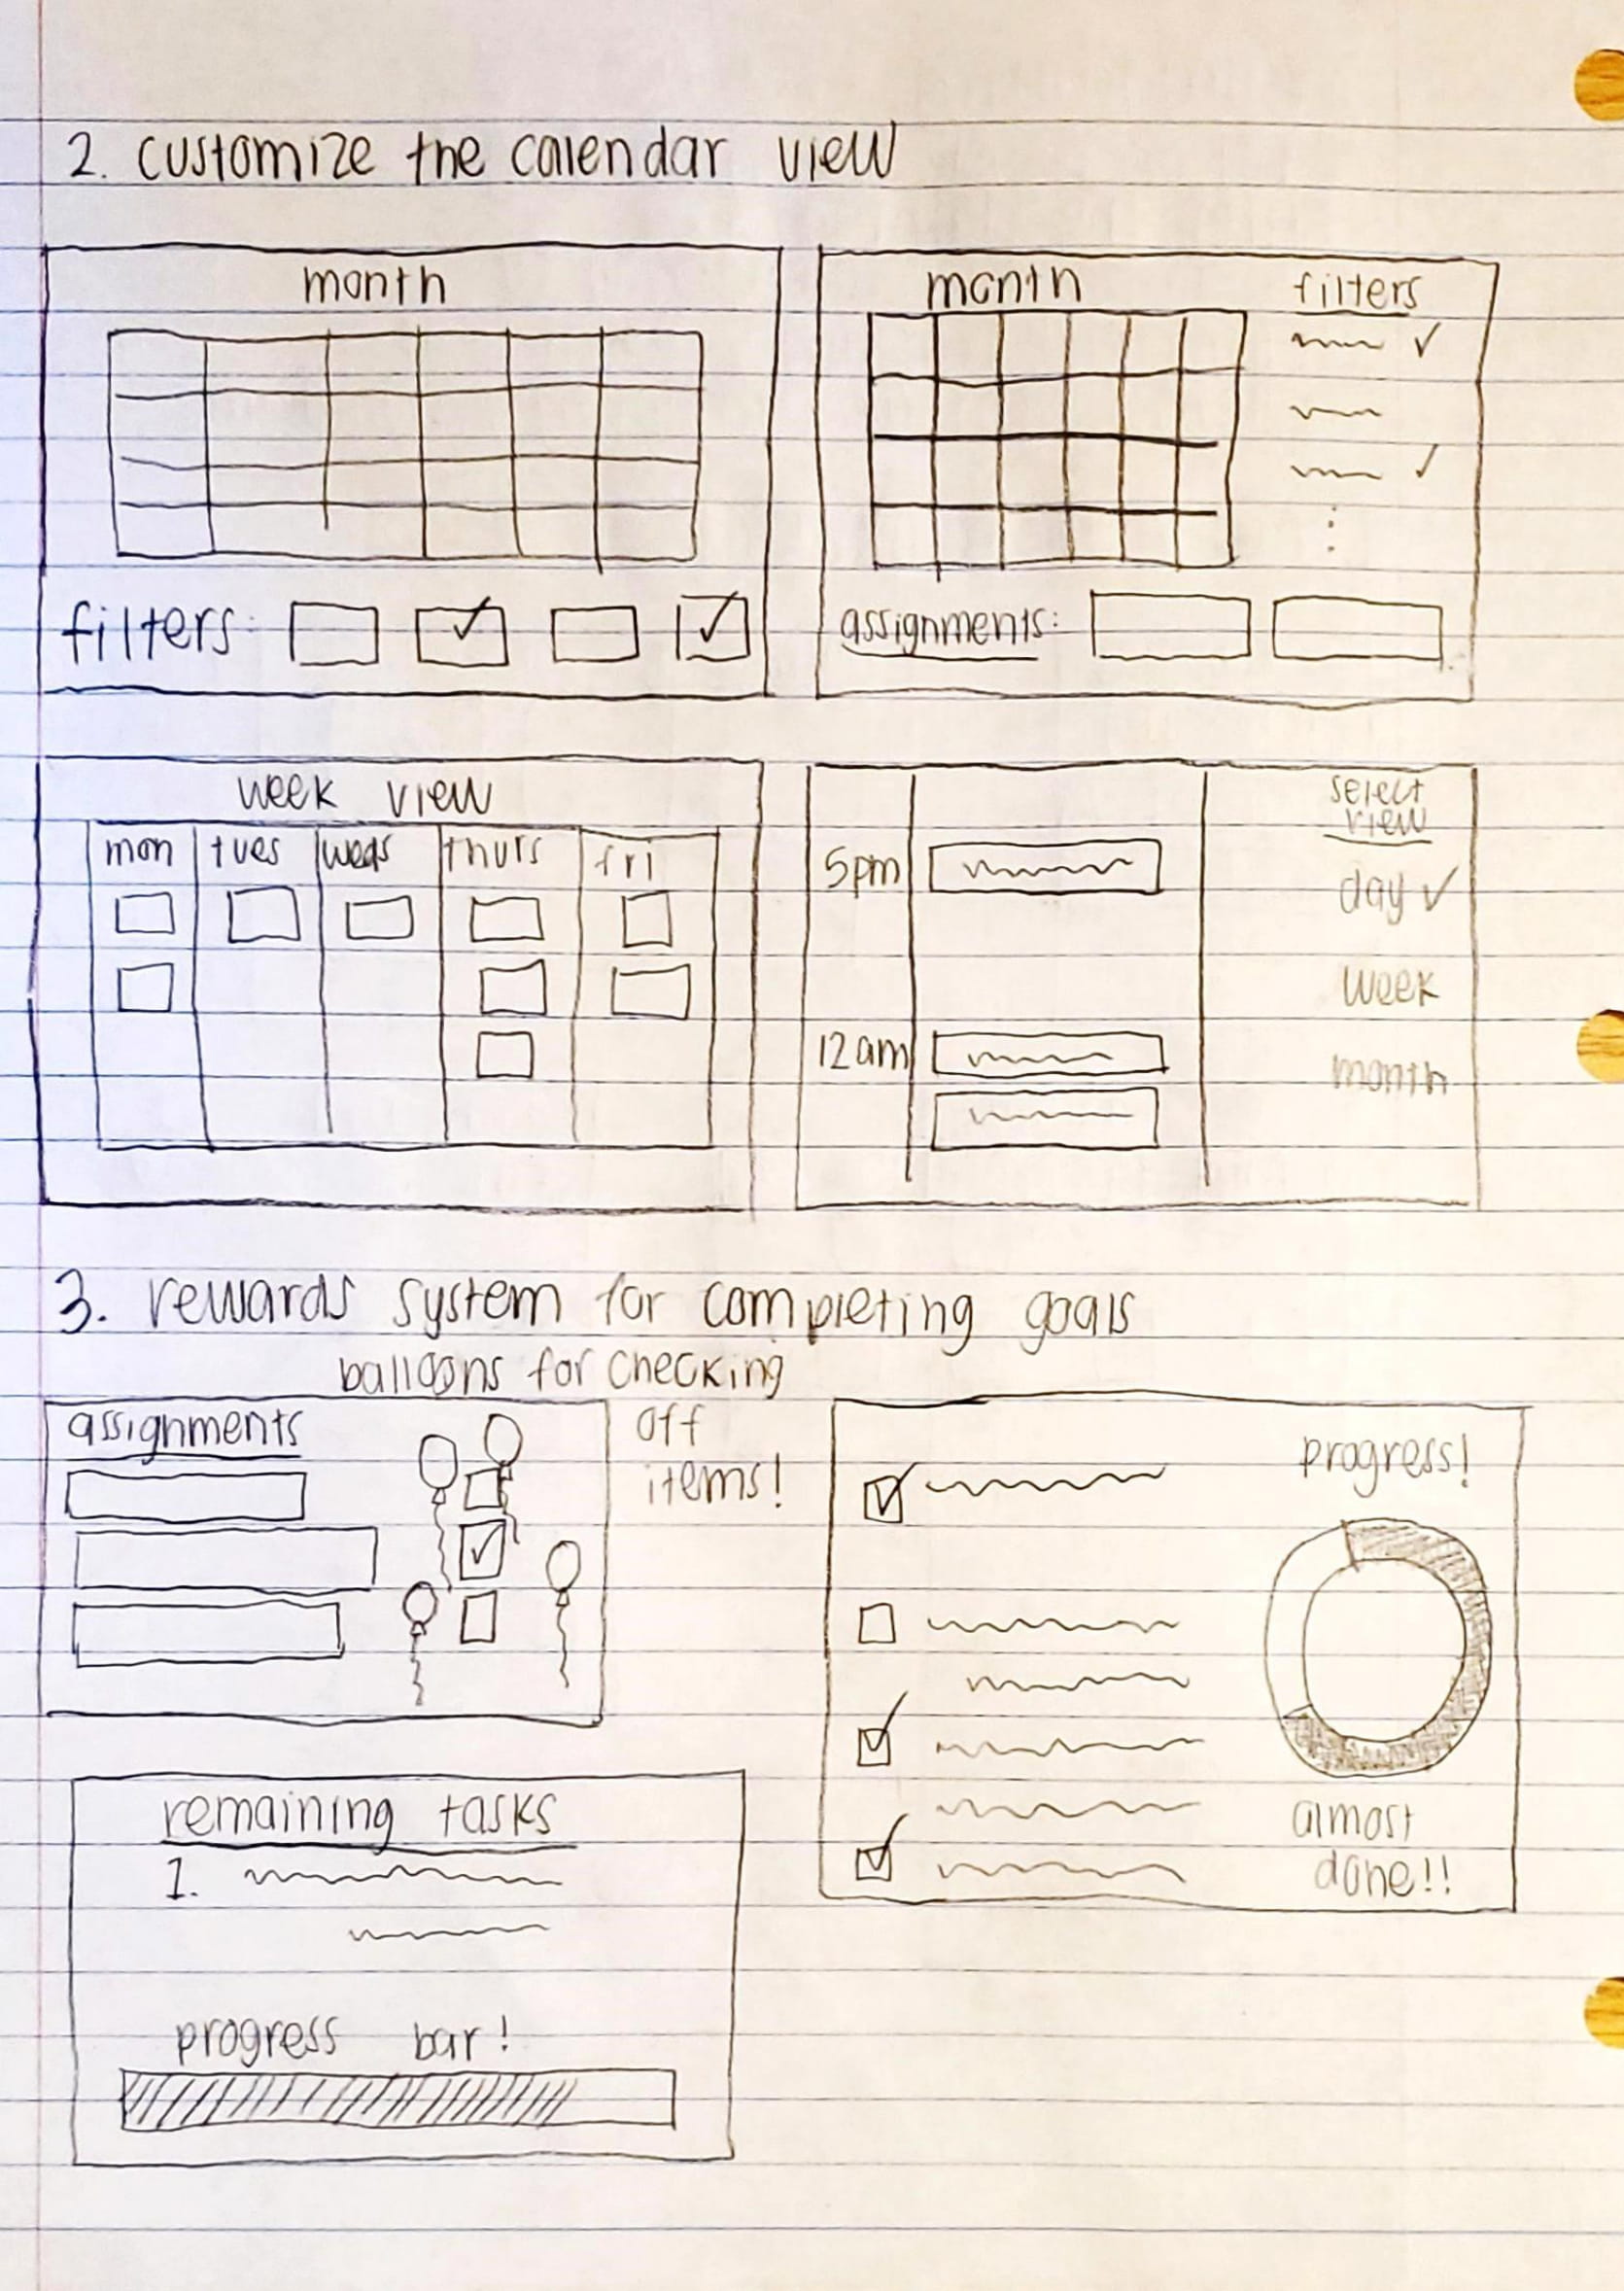 2. customize the calendar view
month
filters:
month
filters
assignments:
week view
mon tues weds thurs fri
5pm
12am
select
view
day
week
month
3. rewards system for completing goals
balloons for checking
off
items!
assignments
progress!
almost
done!!
remaining tasks
1.
progress bar!